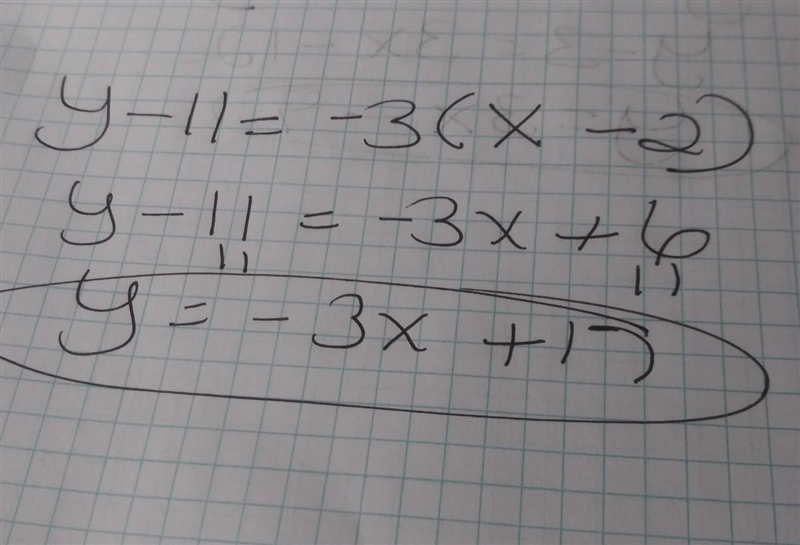 y - 11 = -3(x - 2)
y - 11 = -3x + 6
11 11
y = -3x + 17